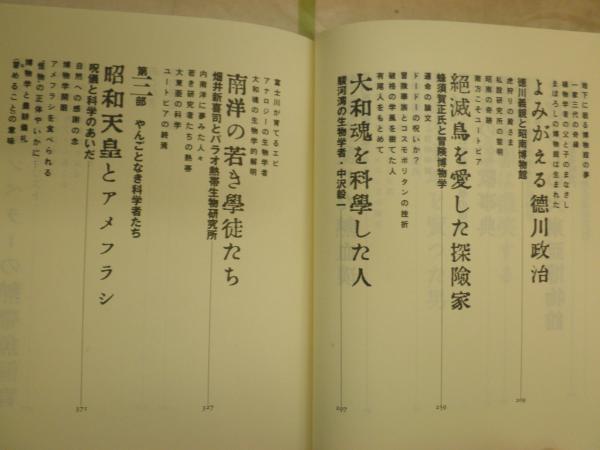 地下に眠る博物館の夢
一家三代の奇縁
植物学者の父と子のまなざし
まぼろしの博物館は生まれた
よみがえる徳川政治
徳川義親と昭南博物館
虎狩りの殿さま
私設研究所の黎明
昭南の奇跡
南方こそユートピア
269
絶滅鳥を愛した探険家
蜂須賀正氏と冒険博物学
運命の論文
ドードーの呪いか?
冒険華族とコスモポリタンの挫折
破格の日本を捨てた人
有尾人をもとめて
259
大和魂を科學した人
駿河湾の生物学者・中沢毅一
297
富士川が育てるエビ
アナロジーの生物学者
大和魂の生物学的解明
南洋の若き學徒たち
畑井新喜司とパラオ熱帯生物研究所
内南洋に夢みた人々
若き研究者たちの熱帯
大東亜の科学
ユートピアの終焉
327
第二部 やんごとなき科学者たち
昭和天皇とアメフラシ
呪儀と科学のあいだ
自然への感謝の念
博物学開眼
アメフラシを食べられる
怪物の正体やいかに…
博物学と農耕儀礼
嘗めることの意味
371